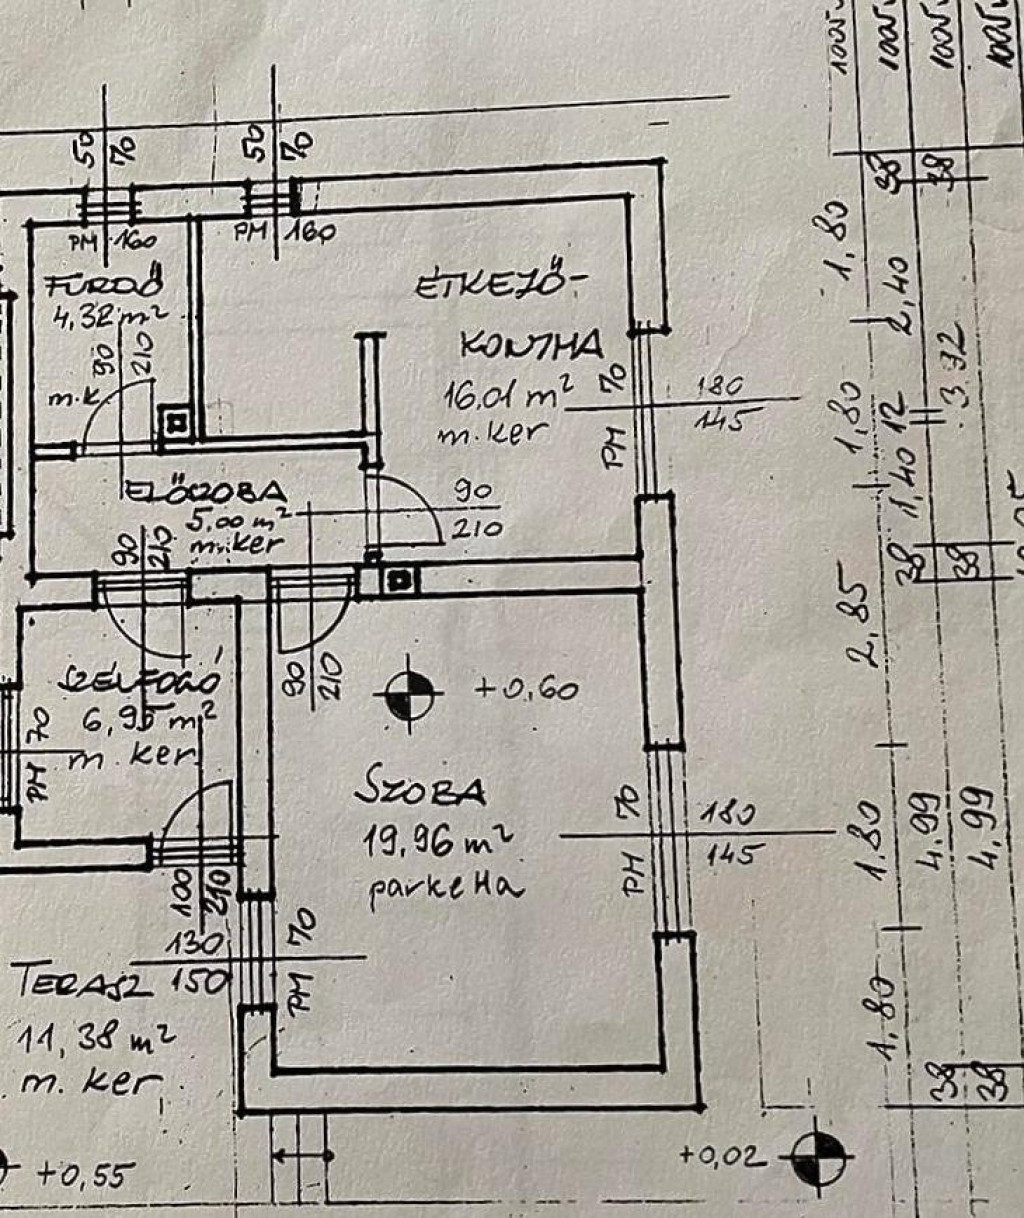 50 70
50 70
PM 160
PM 160
FÜRDŐ
4,32 m²
90
210
m.k
ÉTKEZŐ-
KONYHA
16,01 m²
m.ker
PM 70
180
145
ELŐSZOBA
5,00 m²
m.ker
90
210
90
210
90
210
SZÉLFOGÓ
6,95 m²
m ker.
PM 70
+0,60
SZOBA
19,96 m²
parketta
PM 70
180
145
100
210
130
150
PM 70
TERASZ
11,38 m²
m. ker
+0,55
+0,02
1,80
1,80
2,85
1,80
1,80
38
2,40
12
1,40
38
4.99
38
38
3.92
38
4.99
38